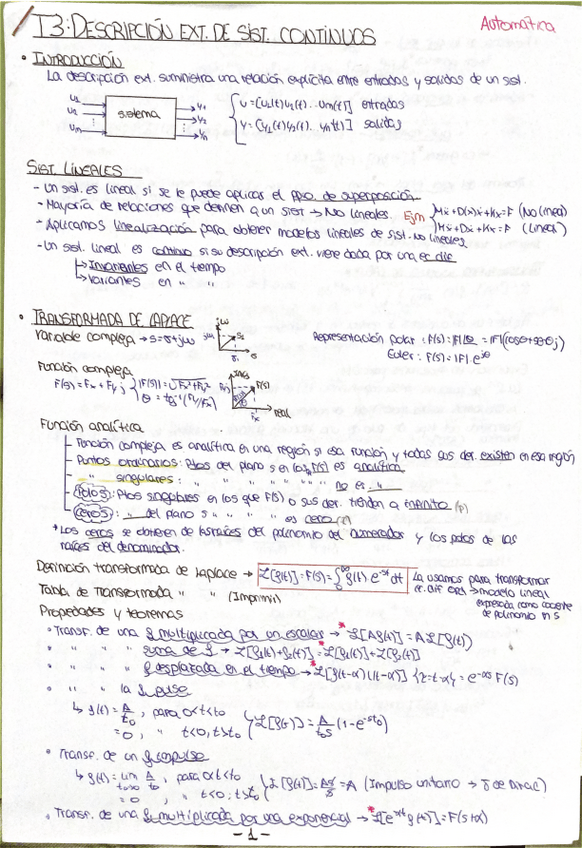 T3: DESCRIPCIÓN EXT. DE SIST. CONTINUOS
Automática
• INTRODUCCIÓN
La descripción ext. suministra una relación explícita entre entradas y salidas de un sist.
u1
u2
um
sistema
y1
y2
yn
u = [u1(t) u2(t) ... um(t)] entradas
y = [y1(t) y2(t) ... yn(t)] salidas
SIST. LINEALES
- Un sist. es lineal si se le puede aplicar el ppio. de superposición
- Mayoría de relaciones que definen a un sist → No lineales. Ejm { Mẍ + D(x)ẋ + Kx = F (No lineal)
- Aplicamos linealización para obtener modelos lineales de sist. no lineales Mẍ + Dẋ + Kx = F (Lineal)
- Un sist. lineal es continuo si su descripción ext. viene dada por una ec. dif
↳ Invariantes en el tiempo
↳ Variantes en " "
• TRANSFORMADA DE LAPLACE
Variable compleja → s = σ + jω
jω
Representación polar: F(s) = |F|∠θ = |F|(cosθ + senθ j)
Euler: F(s) = |F| · e^jθ
Función compleja
F(s) = Fx + Fy j { |F(s)| = √Fx² + Fy²
θ = tg⁻¹(Fy/Fx)
Imag
F(s)
Real
Función analítica
- Función compleja es analítica en una región si esa función y todas sus der. existen en esa región
- Puntos ordinarios: Ptos del plano s en los q F(s) es analítica
- " singulares: " " " " " " " no es "
- Polos: Ptos singulares en los que F(s) o sus der. tienden a infinito (p)
- Ceros: " del plano s " " " " es cero (z)
* Los ceros se obtienen de las raíces del polinomio del numerador y los polos de las
raíces del denominador.
Definición transformada de Laplace → ℒ[f(t)] = F(s) = ∫₀^∞ f(t) e^-st dt La usamos para transformar
ec. dif ord → modelo lineal
expresada como cociente
de polinomio en s
Tabla de Transformada " " (Imprimir)
Propiedades y teoremas
• Transf. de una f multiplicada por un escalar → * ℒ[A f(t)] = A ℒ[f(t)]
• " " " suma de f → * ℒ[f1(t) + f2(t)] = ℒ[f1(t)] + ℒ[f2(t)]
• " " " f desplazada en el tiempo → * ℒ[f(t-α) 1(t-α)] {z = t-α} = e^-αs F(s)
• " " " la f pulso
↳ f(t) = A/t0, para 0<t<t0
= 0, " t<0, t>t0 } ℒ[f(t)] = A/t0s (1 - e^-st0)
• Transf. de un f impulso
↳ f(t) = lim t0→0 A/t0, para 0<t<t0
= 0, " t<0, t>t0 } ℒ[f(t)] = As/s = A (Impulso unitario → δ de Dirac)
• Transf. de una f multiplicada por una exponencial → * ℒ[e^-αt f(t)] = F(s+α)
- 1 -